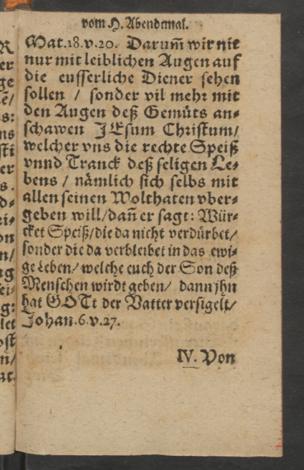 vom H. Abendmal.
Mat.18.v.20. Darum̃ wir nie
nur mit leiblichen Augen auf
die eusserliche Diener sehen
sollen / sonder vil mehr mit
den Augen deß Gemüts an-
schawen JEsum Christum/
welcher vns die rechte Speiß
vnnd Tranck deß seligen Le-
bens / nämlich sich selbs mit
allen seinen Wolthaten vber-
geben will/dañ er sagt: Wür-
cket Speiß/die da nit verdürbet/
sonder die da verbleibet in das ewi-
ge Leben/welche euch der Son deß
Menschen wirdt geben/ dann jhn
hat GOTt der Vatter versigelt/
Johan.6.v.27.
IV. Von